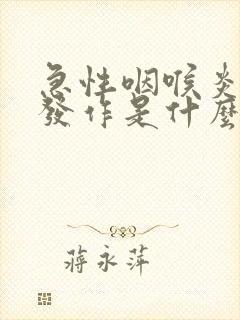 急性咽喉炎
發作是什麼
蔣永萍